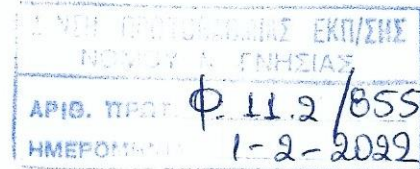 ΕΚΠ/ΣΗΣ
ΝΟΜΟΥ Μ ΓΝΗΣΙΑΣ
ΑΡΙΘ. ΠΡΩΤ. Φ. 11.2/855
ΗΜΕΡΟΜΗΝΙΑ 1-2-2022